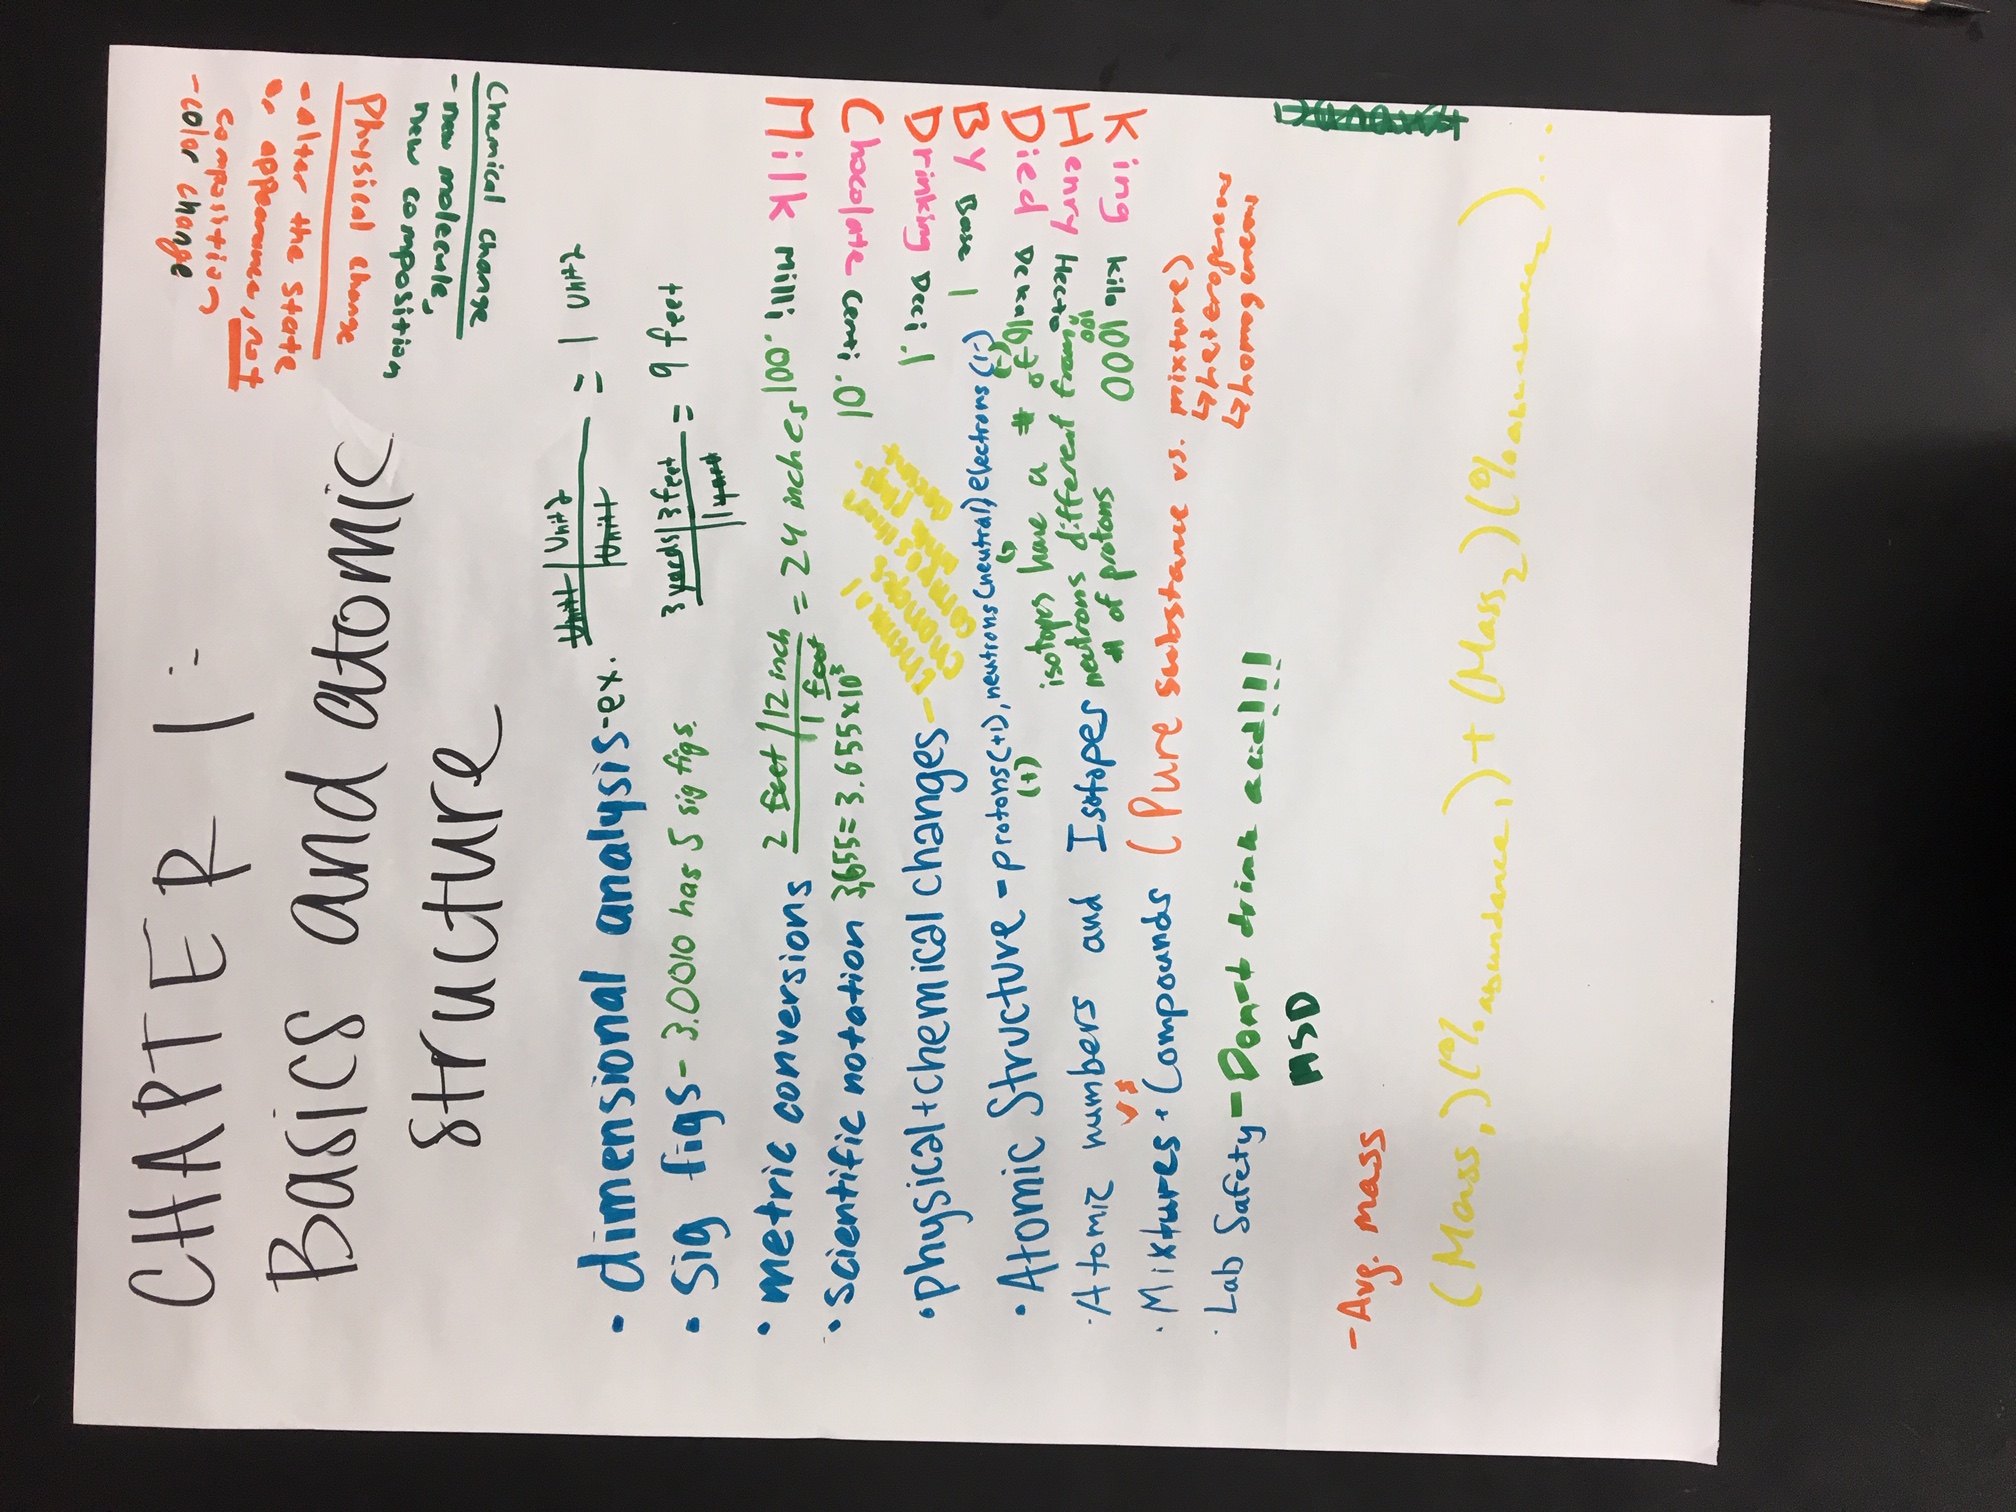 CHAPTER 1:
Basics and atomic
structure
Physical change
-alter the state
or appearance, not
composition
-color change
Chemical change
-new molecule,
new composition
• dimensional analysis-ex. Unit1 | Unit2 / Unit1 = 1 Unit2
• Sig figs - 3.0010 has 5 sig figs.
3 yards | 3 feet / 1 yard = 9 feet
• metric conversions 2 feet | 12 inch / 1 foot = 24 inches
• scientific notation 3,655 = 3.655x10³
• physical + chemical changes -
Thermal
changes
• Atomic Structure - protons (+1), neutrons (neutral) electrons (1-)
(+)
(-)
· Atomic numbers and Isotopes
isotopes have a # of
neutrons different from
# of protons
· Mixtures + Compounds (Pure substance vs. mixture)
vs
↳ heterogeneous
↳ homogeneous
· Lab Safety - Don't drink acid!!!!
MSD
King kilo 1000
Henry Hecto 100
Died Deka 10
By Base 1
Drinking Deci .1
Chocolate Centi .01
Milk Milli .001
- Avg. mass
(Mass₁)(% abundance₁) + (Mass₂)(% abundance₂)...